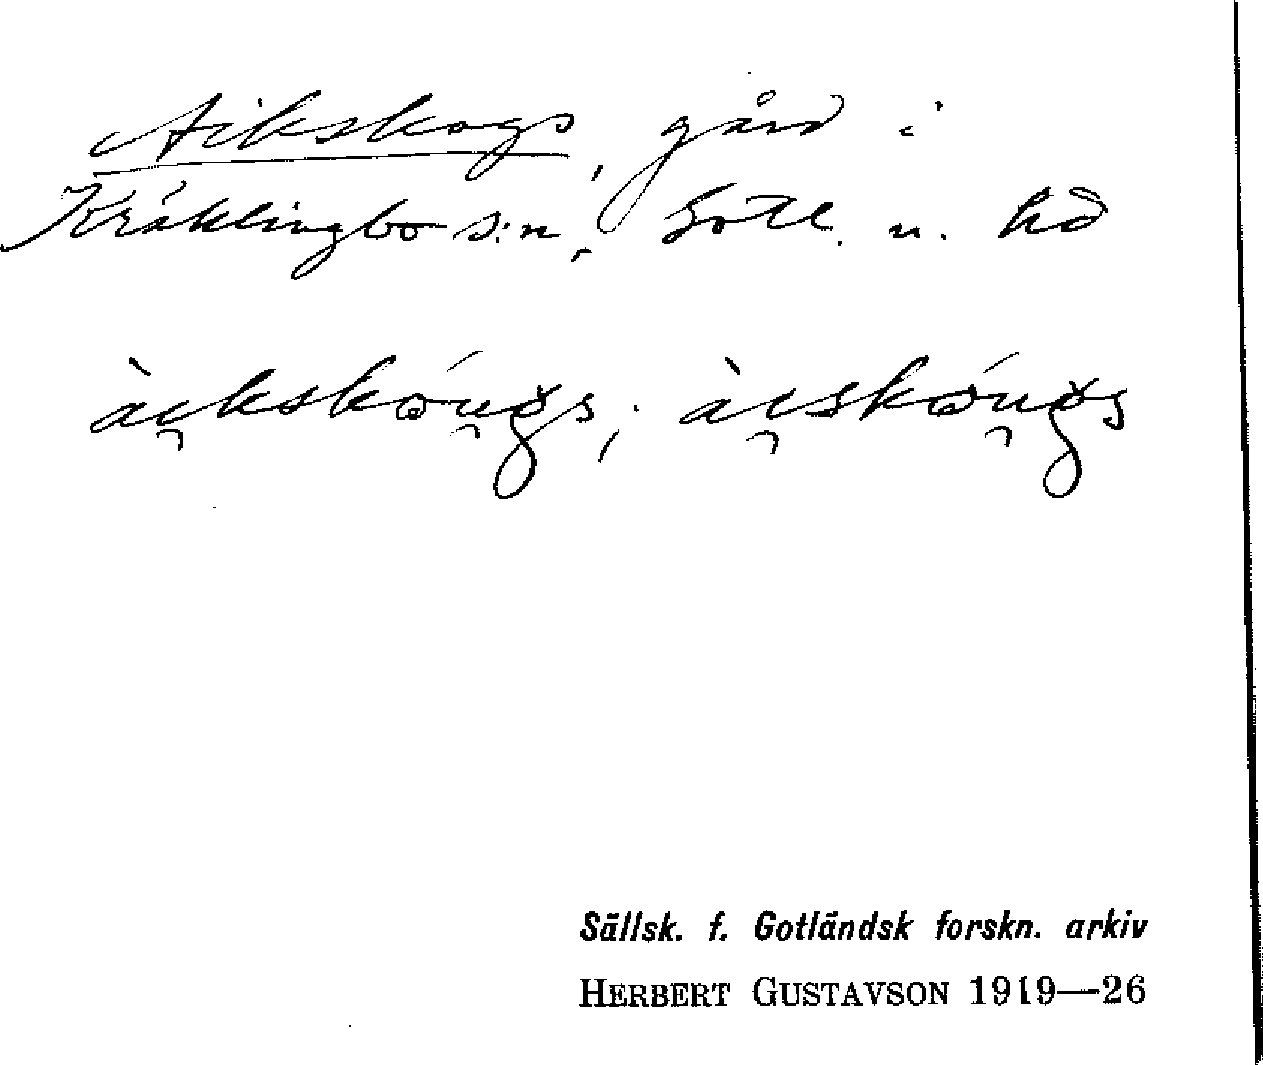 Aikskogs, gård i
Kräklingbo s:n, Gotl. n. hd
ài̯kskóu̯gs; ài̯skóu̯gs
Sällsk. f. Gotländsk forskn. arkiv
HERBERT GUSTAVSON 1919—26